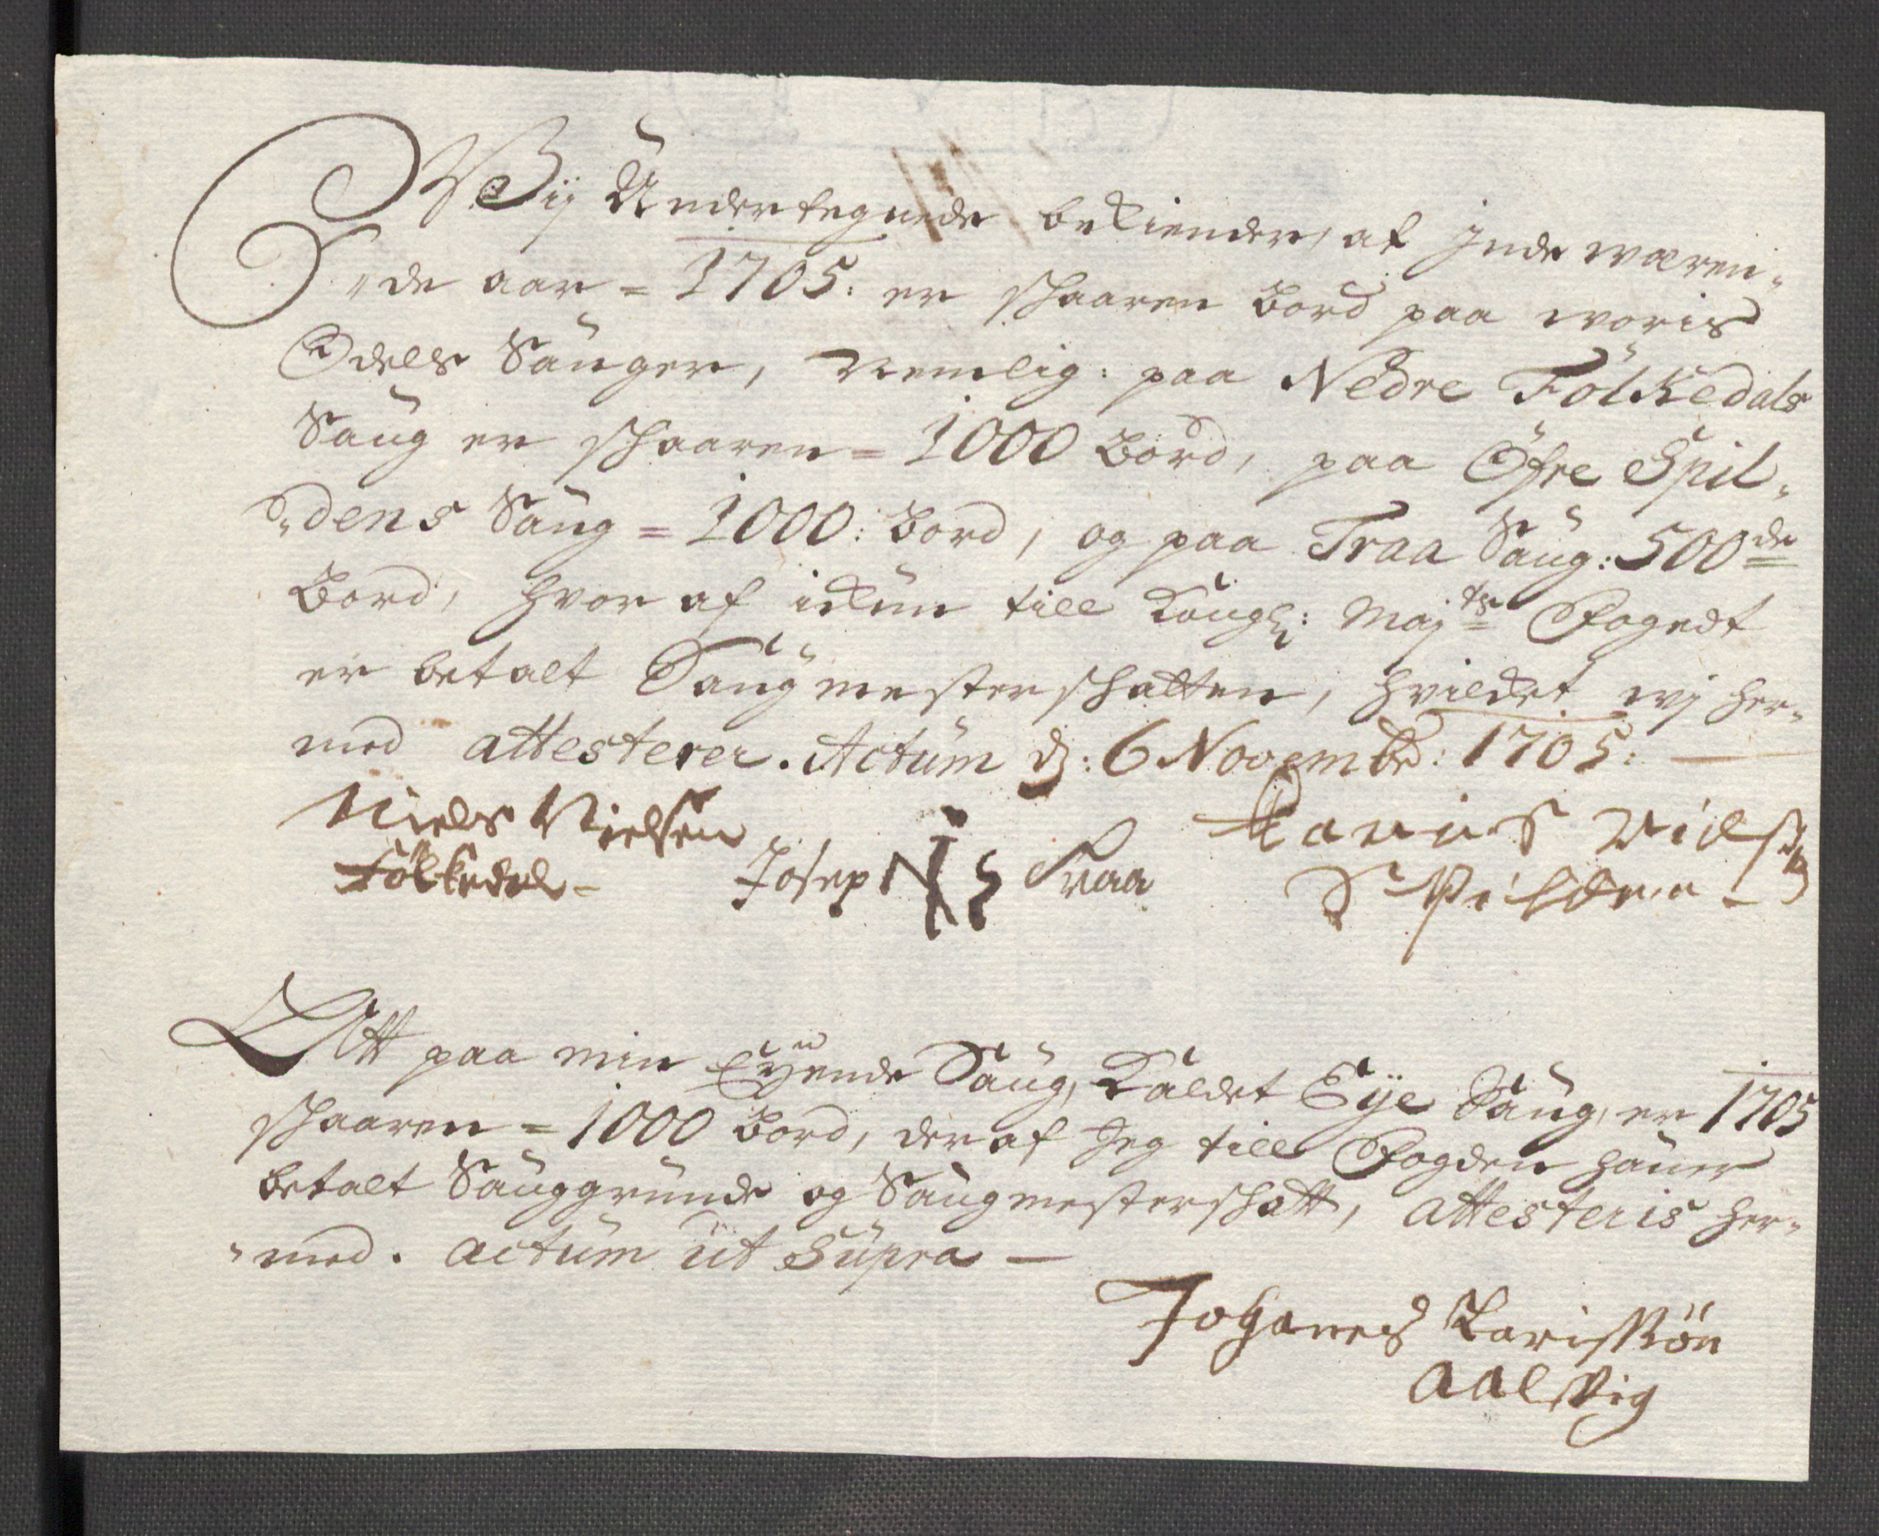 Wij Undertegnede bekiender, at jnde wæren-
de aar = 1705: er schaaren bord paa woris
Odels Sauger, Nemlig: paa Nedre Folkedals
Saug er schaaren = 1000 Bord, paa Øfre Spil-
dens Saug = 1000: Bord, og paa Traa Saug: 500de
Bord, hvor af ickun till Kongl: Majts Fogedt
er betalt Saugmesterschatten, hvilcket wj her-
med attesterer. Actum d: 6 Novembr: 1705:
Niels Nielsen
Folkedal
Josep N S Traa
Nielsen
Spilden
Att paa min Eyende Saug, kaldet Eÿe Saug, er 1705
schaaren = 1000 Bord, der af Jeg till Fogden hauer
betalt Sauggrunde og Saugmesterschatt, attesteris her-
med. Actum ut supra
Johanes Larissøn
Aalvig